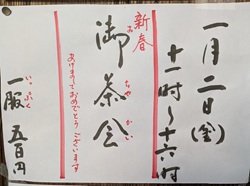 一月二日(金)
十一時〜十六時
新春
御茶会
お ちゃ かい
あけましておめでとうございます
一服 五百円
いっぷく